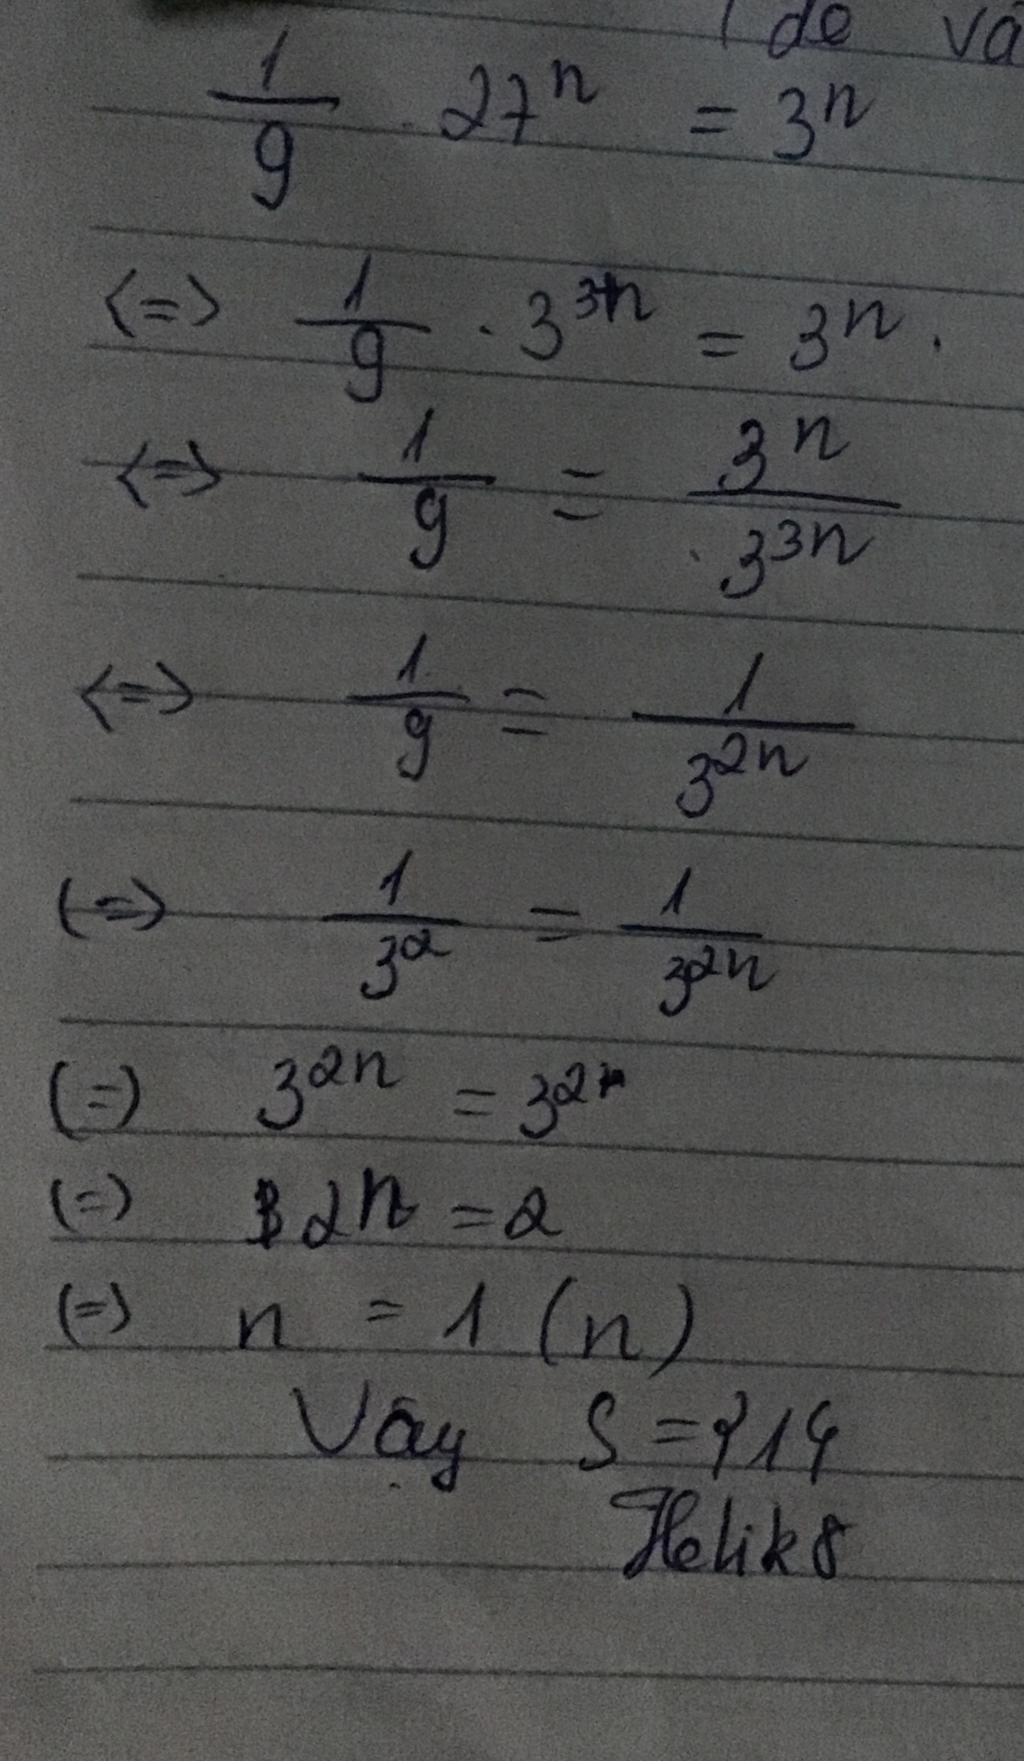 de vâ
1/9 . 27^n = 3^n
<=> 1/9 . 3^3n = 3^n .
<=> 1/9 = 3^n / 3^3n
<=> 1/9 = 1 / 3^2n
<=> 1/3^2 = 1 / 3^2n
(=) 3^2n = 3^2
(=) 2n = 2
(=) n = 1 (n)
Vậy S = {1}
Helik8